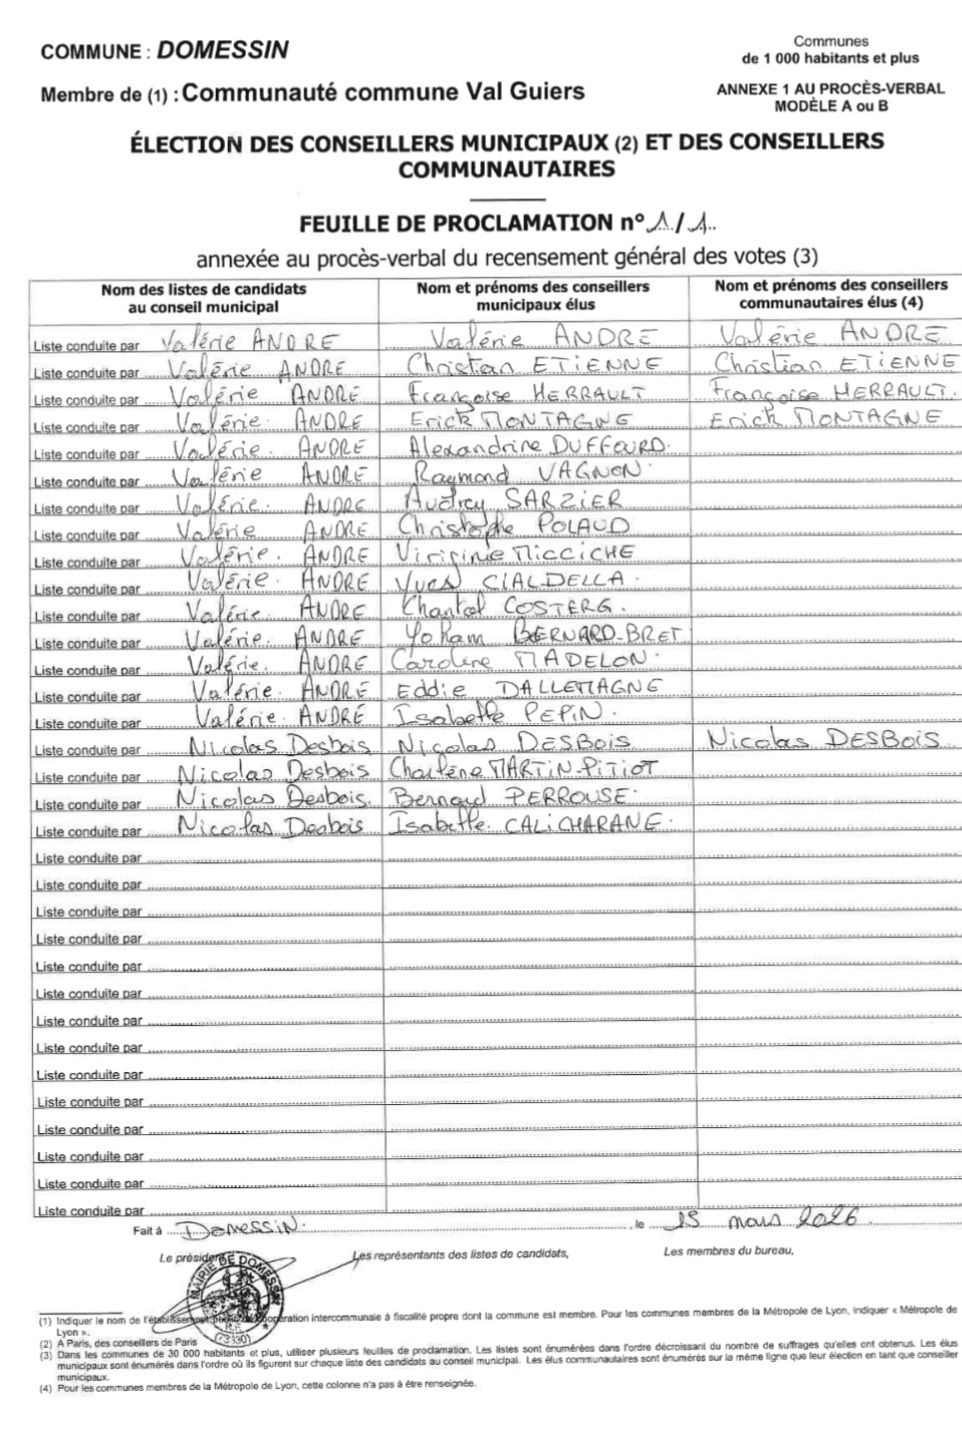 COMMUNE : DOMESSIN
Communes
de 1 000 habitants et plus
Membre de (1) : Communauté commune Val Guiers
ANNEXE 1 AU PROCÈS-VERBAL
MODÈLE A ou B
ÉLECTION DES CONSEILLERS MUNICIPAUX (2) ET DES CONSEILLERS
COMMUNAUTAIRES
FEUILLE DE PROCLAMATION n° 1/1
annexée au procès-verbal du recensement général des votes (3)
Nom des listes de candidats au conseil municipal Nom et prénoms des conseillers municipaux élus Nom et prénoms des conseillers communautaires élus (4)
Liste conduite par Valérie ANDRE Valérie ANDRE Valérie ANDRE
Liste conduite par Valérie ANDRE Christian ETIENNE Christian ETIENNE
Liste conduite par Valérie ANDRE Françoise HERRAULT Françoise HERRAULT.
Liste conduite par Valérie ANDRE Erick MONTAGNE Erick MONTAGNE
Liste conduite par Valérie ANDRE Alexandrine DUFFOURD.
Liste conduite par Valérie ANDRE Raymond VAGNON.
Liste conduite par Valérie ANDRE Audrey SARZIER
Liste conduite par Valérie ANDRE Christophe POLAUD
Liste conduite par Valérie ANDRE Virginie MICCICHE
Liste conduite par Valérie ANDRE Yves CIALDELLA.
Liste conduite par Valérie ANDRE Chantal COSTERG.
Liste conduite par Valérie ANDRE Yoham BERNARD-BRET
Liste conduite par Valérie ANDRE Caroline MADELON.
Liste conduite par Valérie ANDRÉ Eddie DALLEMAGNE
Liste conduite par Valérie ANDRÉ Isabelle PEPIN.
Liste conduite par Nicolas Desbois Nicolas DESBOIS Nicolas DESBOIS
Liste conduite par Nicolas Desbois Charlène MARTIN-PITIOT
Liste conduite par Nicolas Desbois. Bernard PERROUSE.
Liste conduite par Nicolas Desbois Isabelle CALICHARANE.
Liste conduite par
Liste conduite par
Liste conduite par
Liste conduite par
Liste conduite par
Liste conduite par
Liste conduite par
Liste conduite par
Liste conduite par
Liste conduite par
Liste conduite par
Liste conduite par
Liste conduite par
Liste conduite par
Fait à Domessin. , le 15 mars 2026
Le président Les représentants des listes de candidats, Les membres du bureau,
MAIRIE DE DOMESSIN
R.F.
(73330)
(1) Indiquer le nom de l'établissement public de coopération intercommunale à fiscalité propre dont la commune est membre. Pour les communes membres de la Métropole de Lyon, indiquer « Métropole de
Lyon ».
(2) A Paris, des conseillers de Paris
(3) Dans les communes de 30 000 habitants et plus, utiliser plusieurs feuilles de proclamation. Les listes sont énumérées dans l'ordre décroissant du nombre de suffrages qu'elles ont obtenus. Les élus
municipaux sont énumérés dans l'ordre où ils figurent sur chaque liste des candidats au conseil municipal. Les élus communautaires sont énumérés sur la même ligne que leur élection en tant que conseiller
municipaux.
(4) Pour les communes membres de la Métropole de Lyon, cette colonne n'a pas à être renseignée.